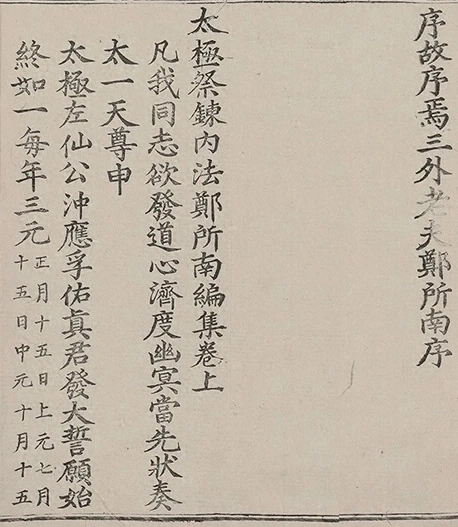 序故序焉三外老夫鄭所南序
太極祭鍊內法鄭所南編集卷上
凡我同志欲發道心濟度幽冥當先狀奏
太一天尊申
太極左仙公沖應孚佑眞君發大誓願始
終如一每年三元正月十五日上元七月
十五日中元十月十五